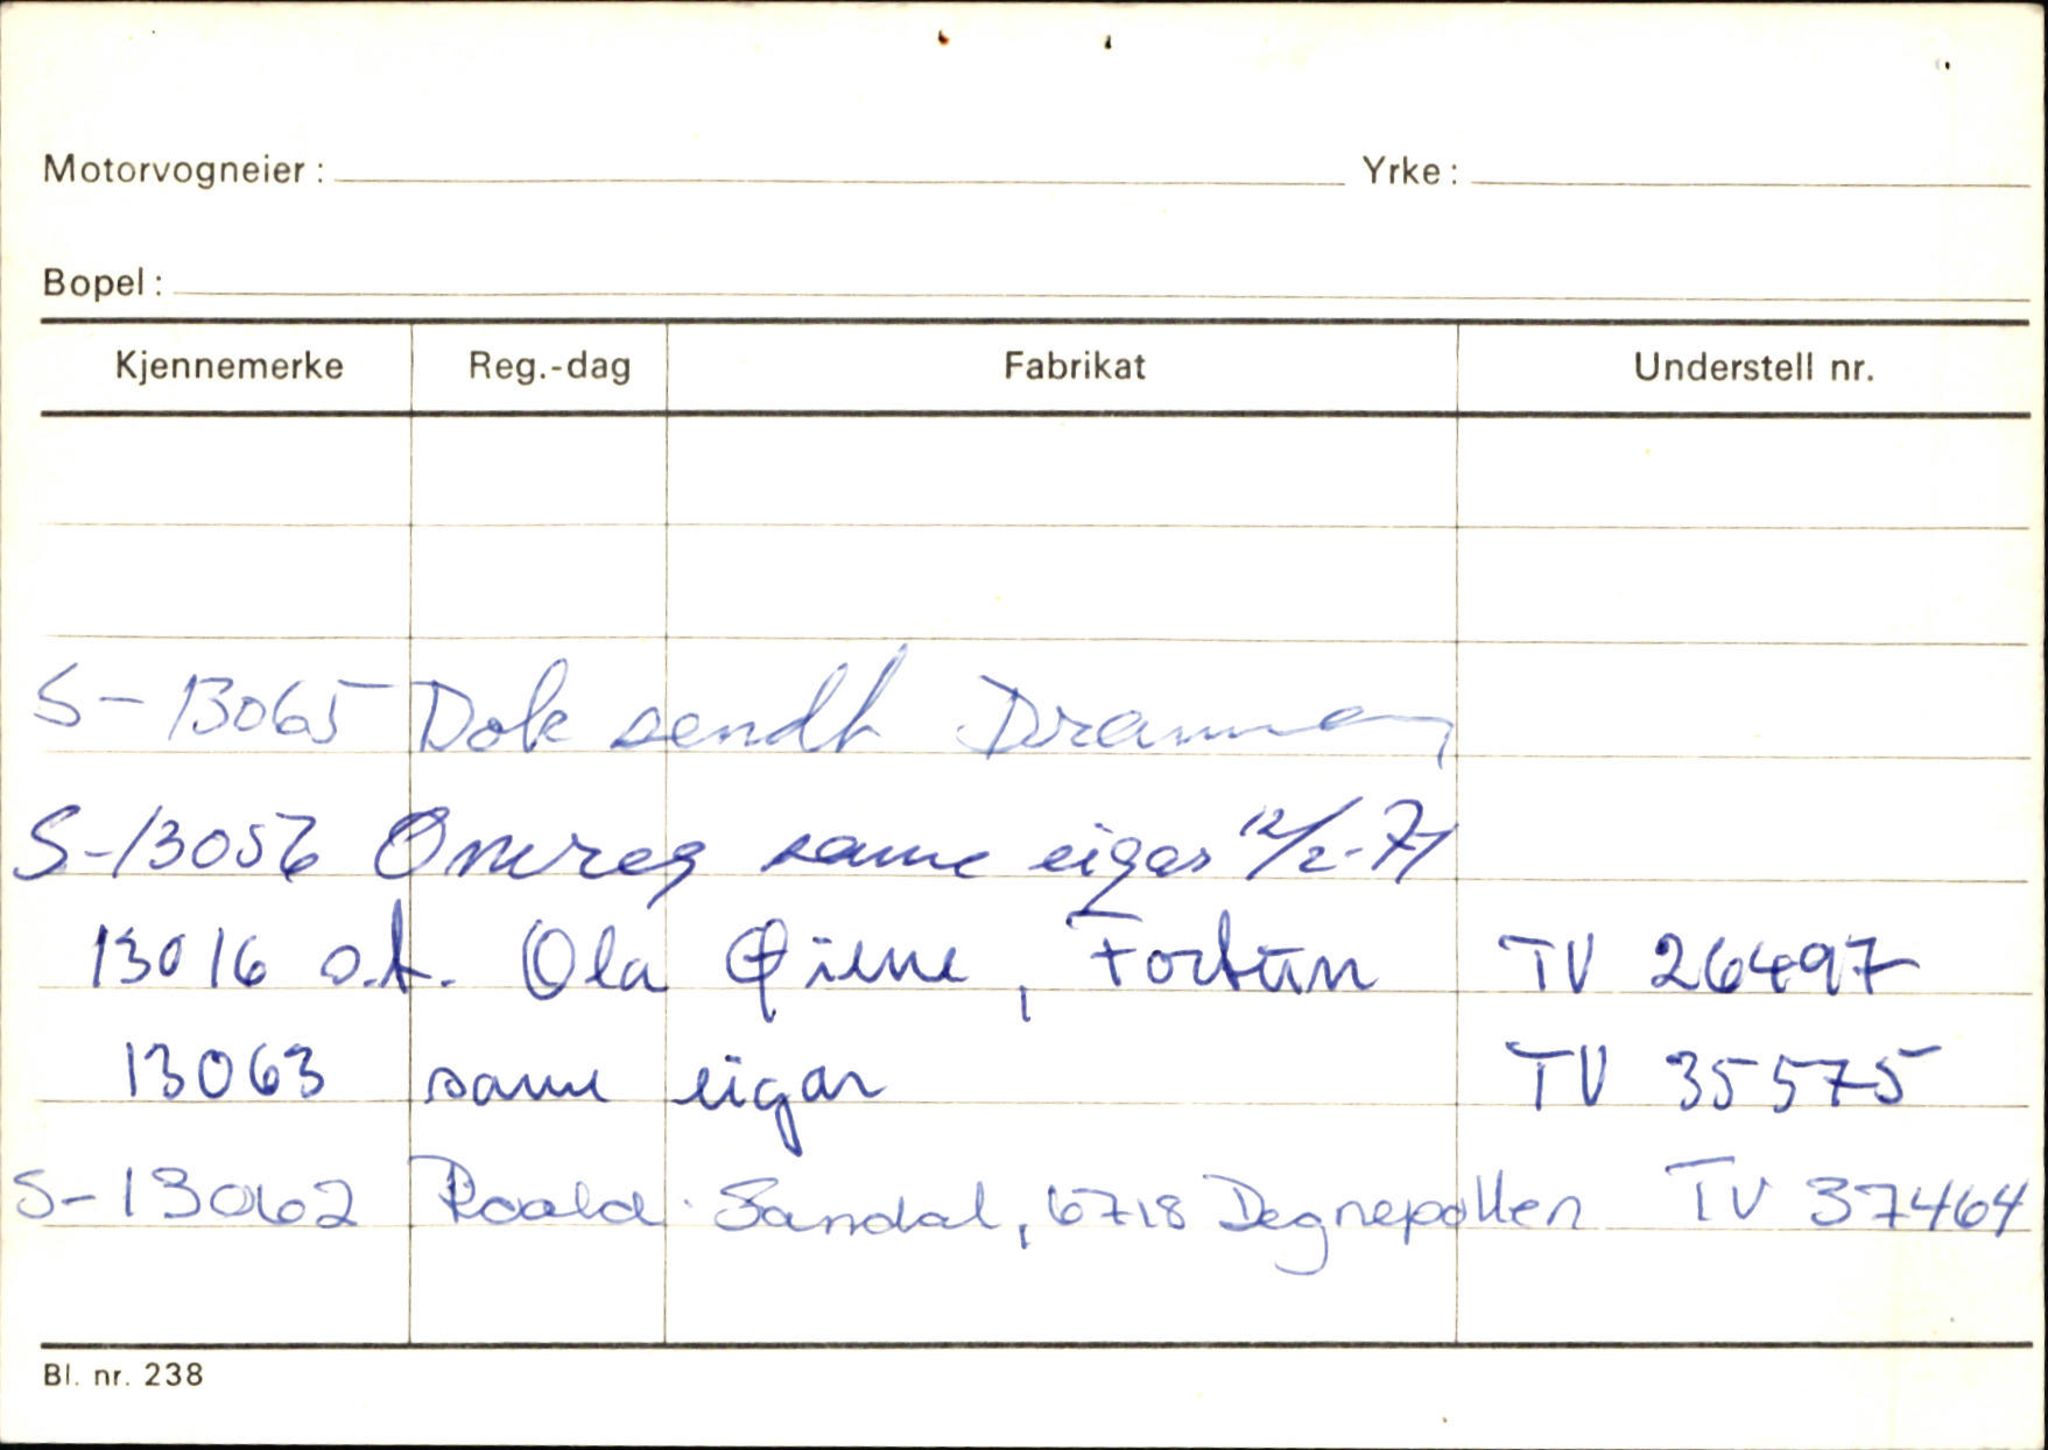 Motorvogneier: Yrke:
Bopel:
Kjennemerke Reg.-dag Fabrikat Understell nr.
S-13065 Dok sendt Drammen
S-13056 Omreg same eigar 12/2-71
13016 o.t. Ola Øiene, Fortun TV 26497
13063 same eigar TV 35575
S-13062 Roald Sandal, 6718 Degnepollen TV 37464
Bl. nr. 238